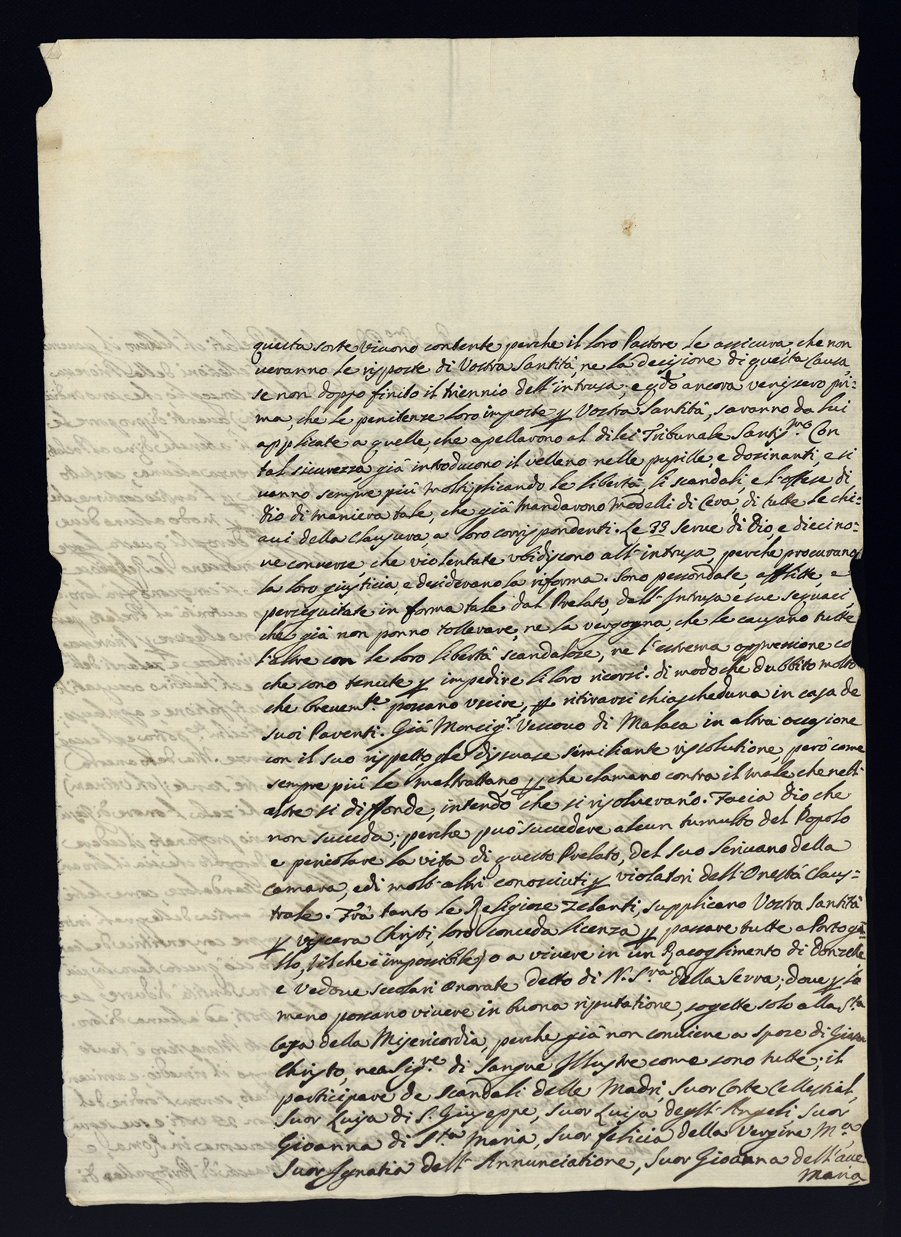 questa sorte vivono contente perche il loro Pastore le assicura che non
veranno le risposte di Vostra Santità, ne la decisione di questa Causa
se non doppo finito il triennio dell'intrusa; e qdo ancora venissero pri-
ma, che le penitenze loro imposte p Vostra Santità, saranno da lui
applicate a quelle, che apellarono al di lei Tribunale Santissmo Con
tal sicurezza già introducono il velleno nelle pupille, e dozinanti, e si
vanno sempre più moltiplicando le libertà, li scandali e l'offese di
Dio di maniera tale, che già mandarono modelli di Cera, di tutte le chi-
avi della Clausura a loro corrispondenti. Le 33 Serve di Dio, e dieci no-
ve converse che violentate ubidiscono all'intrusa, perche procurano
la loro giusticia, e desiderano la riforma. Sono percondate, afflitte, e
perseguitate in forma tale dal Prelato, dall'Intrusa e sue seguaci,
che già non ponno tollerare, ne la vergogna, che le causano tutte
l'altre con le loro libertà scandalose, ne l'estrema oppressione co
che sono tenute p impedire li loro ricorsi. di modo che dubbito molto
che brevemte possano uscire, p ritirarsi chiascheduna in casa de
suoi Parenti. Già Moncigr Vescovo di Malaca in altra occasione
con il suo rispetto le disuase similiante risolutione, però come
sempre più le maltrattano p che clamano contra il male che nell'
altre si diffonde, intendo che si risolverano. Facia Dio che
non succeda; perche può succedere alcun tumulto del Popolo
e pericolare la vita di questo Prelato, del suo Scrivano della
Camara, e di molt'altri conosciuti p violatori dell'Onestà Claus-
trale. Frà tanto le Religiose Zelanti, supplicano Vostra Santità
p viscera Christi, loro conceda licenza p passare tutte a Portoga
llo, (il che è impossibile) o a vivere in un Racoglimento di Donzelle
e Vedove scolari onorate detto di N. Sra della Serra; dove p lo
meno possano vivere in buona riputatione, sogette solo alla Sta
Casa della Misericordia, perche già non conviene a Spose di Giesu
Christo, ne a Sigre di Sangue Illustre come sono tutte; il
participare de scandali delle Madri, Suor Corte Cellestial,
Suor Luisa di S. Giuseppe, Suor Luisa degl'Angeli, Suor
Gioanna di Sta Maria, Suor felicia della Vergine Ma
Suor Ignatia dell'Annunciatione, Suor Gioanna dell'ave
Maria